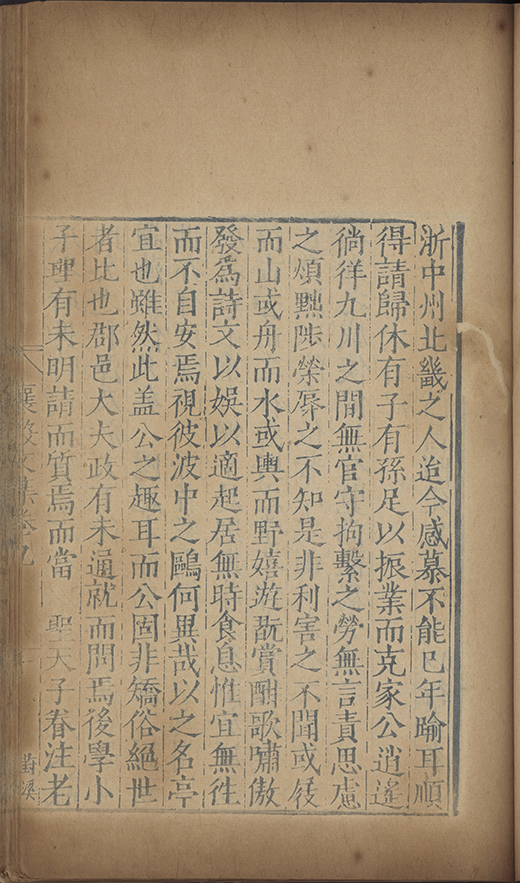 浙中州北畿之人迨今感慕不能已年踰耳順
得請歸休有子有孫足以振業而克家公逍遙
徜徉九川之間無官守拘繫之勞無言責思慮
之煩黜陟榮辱之不知是非利害之不聞或屐
而山或舟而水或輿而野嬉遊翫賞酣歌嘯傲
發爲詩文以娛以適起居無時食息惟宜無徃
而不自安焉視彼波中之鷗何異哉以之名亭
宜也雖然此盖公之趣耳而公固非矯俗絕世
者比也郡邑大夫政有未通就而問焉後學小
子理有未明請而質焉而當　聖天子眷注老
襄毅文集卷九